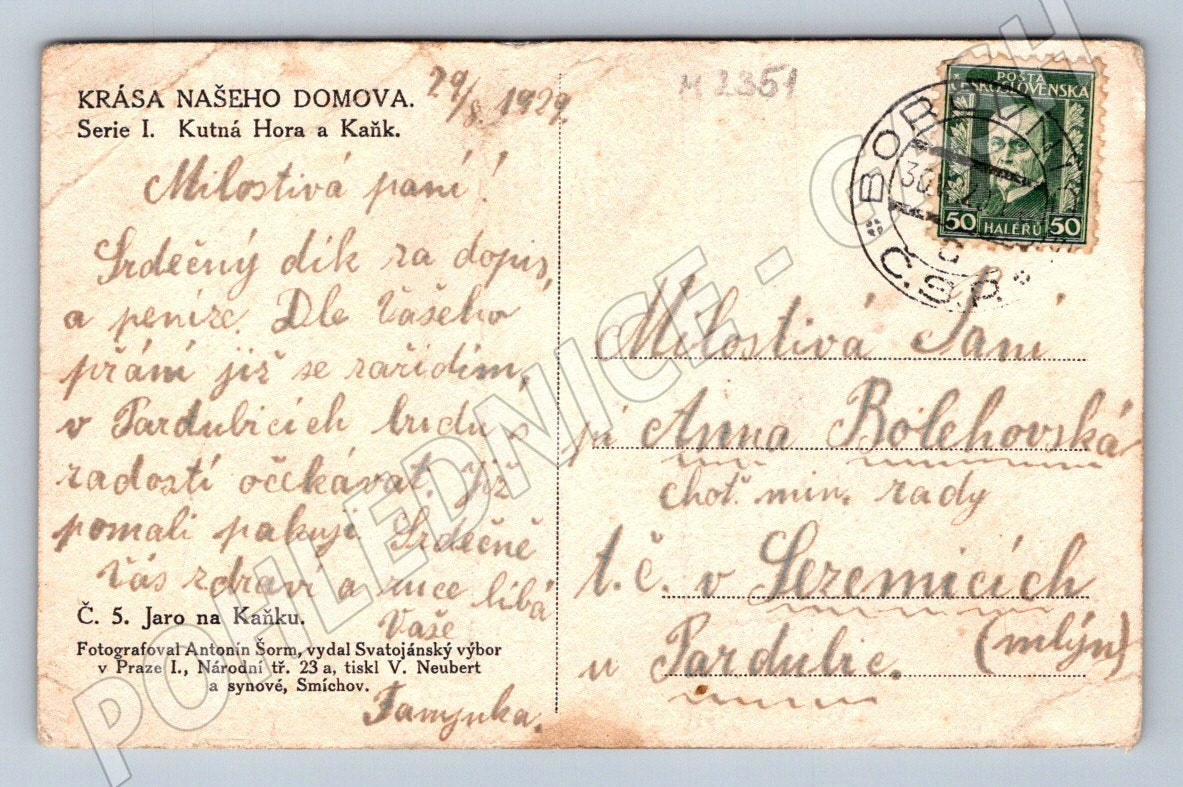 KRÁSA NAŠEHO DOMOVA.
Serie I. Kutná Hora a Kaňk.
29/8. 1929.
Milostivá paní!
Srdečný dík za dopis,
a peníze. Dle Vašeho
přání již se zařídím,
v Pardubicích budu s
radostí očekávat. Již
pomali pakuji. Srdečně
Vás zdraví a ruce líbá
Vaše
Č. 5. Jaro na Kaňku.
Fotografoval Antonín Šorm, vydal Svatojánský výbor
v Praze I., Národní tř. 23 a, tiskl V. Neubert
a synové, Smíchov.
M 2351
POŠTA
ČESKOSLOVENSKÁ
50 HALÉŘŮ 50
Č.S.P.
Milostivá Paní
pí Anna Bolehovská
choť. min. rady
t. č. v Sezemicích
(mlýn)
u Pardubic.
POHLEDNICE - CZECH